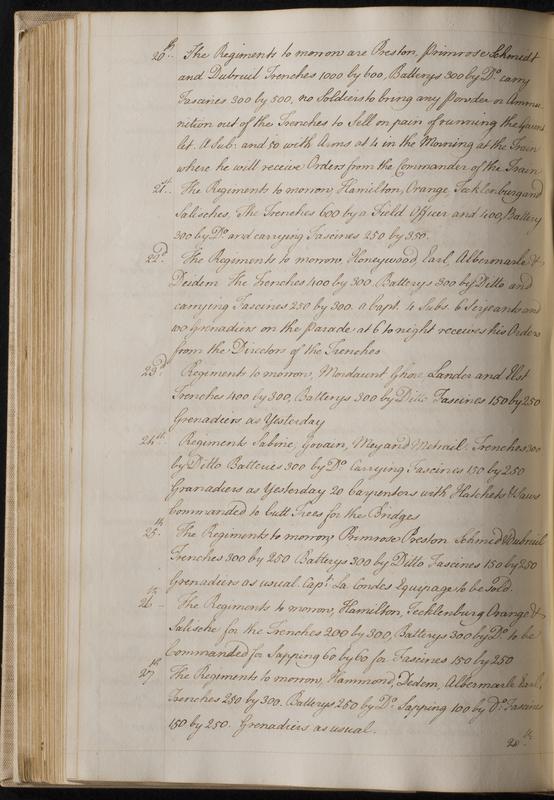 20th. The Regiments to morrow are Preston, Primrose Schmidt
and Dubruil Trenches 1000 by 600, Batterys 300 by Do. carry
Fascines 300 by 500, no Soldiers to bring any Powder or Ammu
nition out of the Trenches to Sell on pain of running the Gaunt
let. A Sub: and 50 with Arms at 4 in the Morning at the Train
where he will receive Orders from the Commander of the Train
21st. The Regiments to morrow, Hamilton, Orange, Tecklenburg and
Salisches, The Trenches 600 by a Field Officer and 400, Battery
300 by Do. and carrying Fascines 250 by 350.
22d. The Regiments to morrow Honeywood, Earl, Albermarle &
Deidem The Trenches 400 by 300. Batterys 300 by Ditto and
carrying Fascines 250 by 300. a Capt. 4 Subs. 6 Serjeants and
100 Grenadiers on the Parade at 6 to night receives his Orders
from the Directors of the Trenches
23d. Regiments to morrow, Mordaunt Lander and Elst
Trenches 400 by 300, Batterys 300 by Ditto Fascines 150 by 250
Grenadiers as Yesterday
24st. Regiments Sabine, Govain, Mey and Metrail. Trenches 300
by Ditto Batteries 300 by Do Carrying Fascines 150 by 250
Granadiers as Yesterday 20 Carpenters with Hatchets & Saws
Commanded to Cutt Trees for the Bridges
25th. The Regiments to morrow Primrose Preston Schmid & Dubruil
Trenches 300 by 250 Batterys 300 by Ditto Fascines 150 by 250
Grenadiers as usual. Capt. La Condes Equipage to be Sold.
26th The Regiments to morrow, Hamilton, Tecklenburg Orange &
Salische for the Trenches 200 by 300, Batterys 300 by Do. to be
Commanded for Sapping 60 by 60 for Fascines 150 by 250
27th The Regiments to morrow, Hammond, Dedem, Albermarle Earl,
Trenches 250 by 300. Batterys 250 by Do. Sapping 100 by Do. Fascines
150 by 250. Grenadiers as usual.
28th.